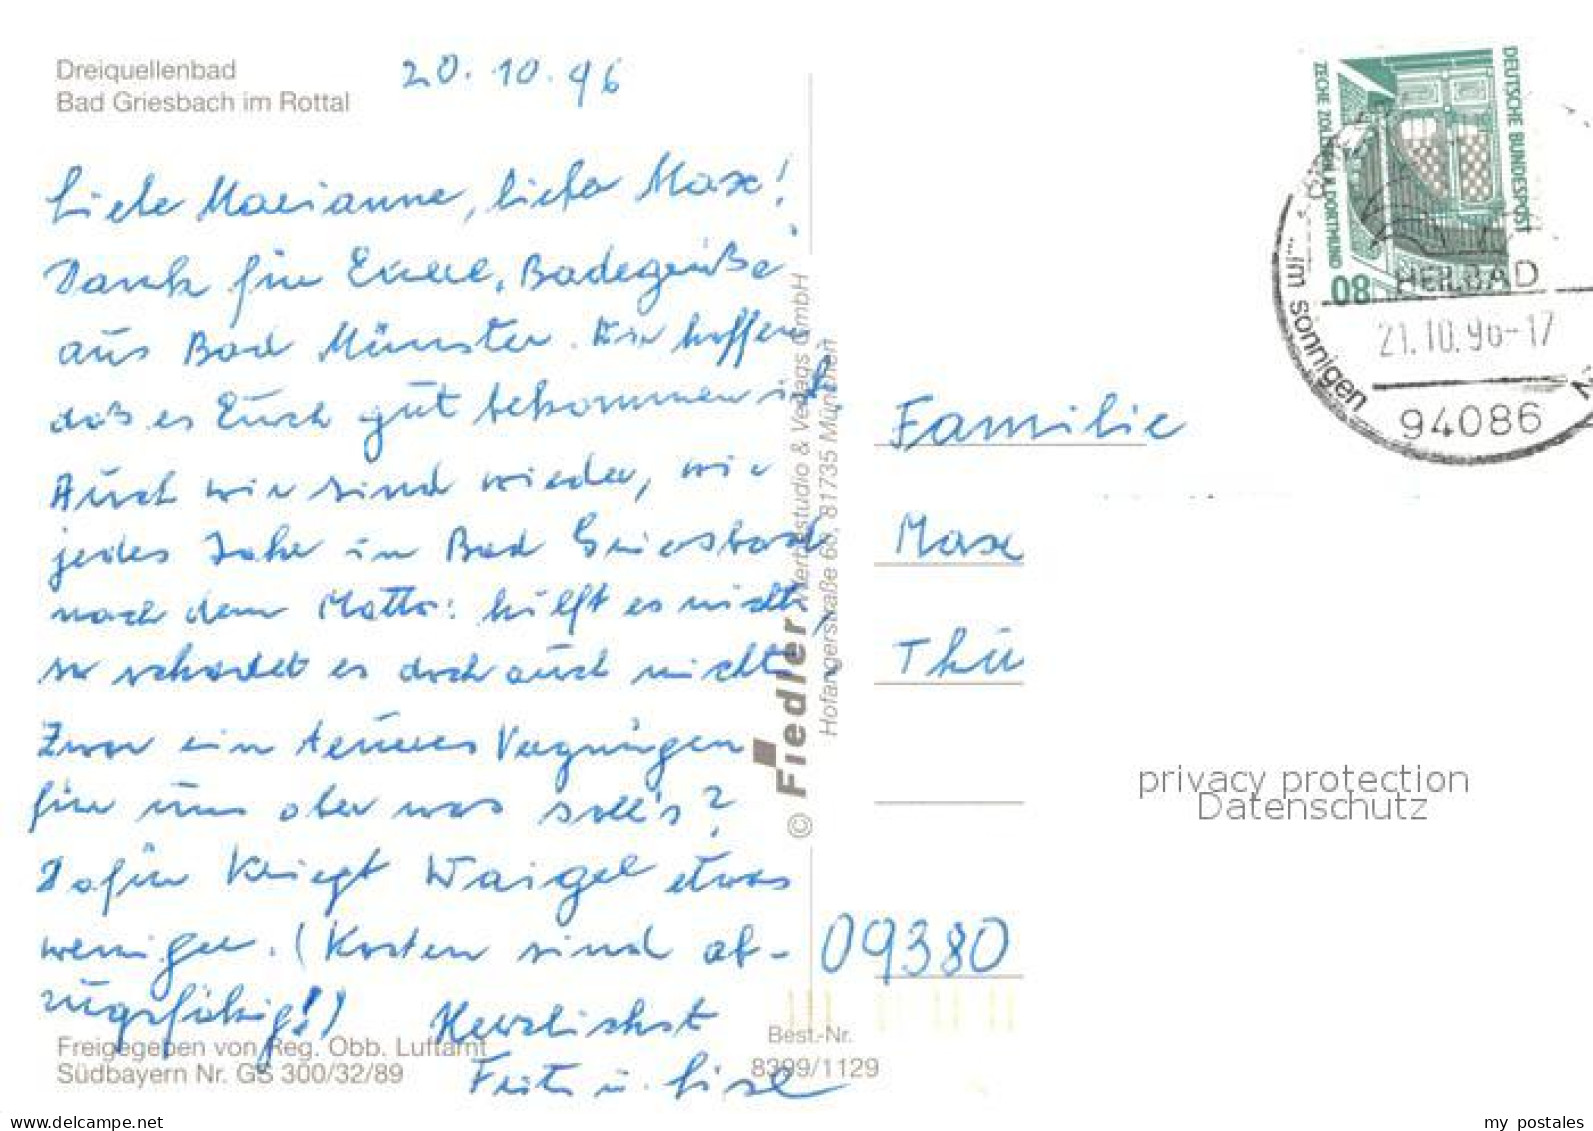 Dreiquellenbad
Bad Griesbach im Rottal
20.10.96
Liebe Marianne, lieber Max!
Dank für Euere Badegrüße
aus Bad Münster. Wir hoffen
daß es Euch gut bekommen ist.
Auch wir sind wieder, wie
jedes Jahr in Bad Griesbach
nach dem Motto: hilft es nicht,
so schadet es doch auch nicht
Zwar ein teueres Vergnügen
für uns aber was soll's?
Dafür kriegt Waigel etwas
weniger. (Kosten sind ab-
zugsfähig!)
Herzlichst
Fritz u. Lise
Freigegeben von Reg. Obb. Luftamt
Südbayern Nr. GS 300/32/89
© Fiedler Werbestudio & Verlags GmbH
Hofangerstraße 66, 81735 München
Best.-Nr.
8399/1129
DEUTSCHE BUNDESPOST
ZECHE ZOLLERN II, DORTMUND
80
HEILBAD
21.10.96-17
94086
...im sonnigen
Familie
Max
Thü
09380
privacy protection
Datenschutz
www.delcampe.net
my postales